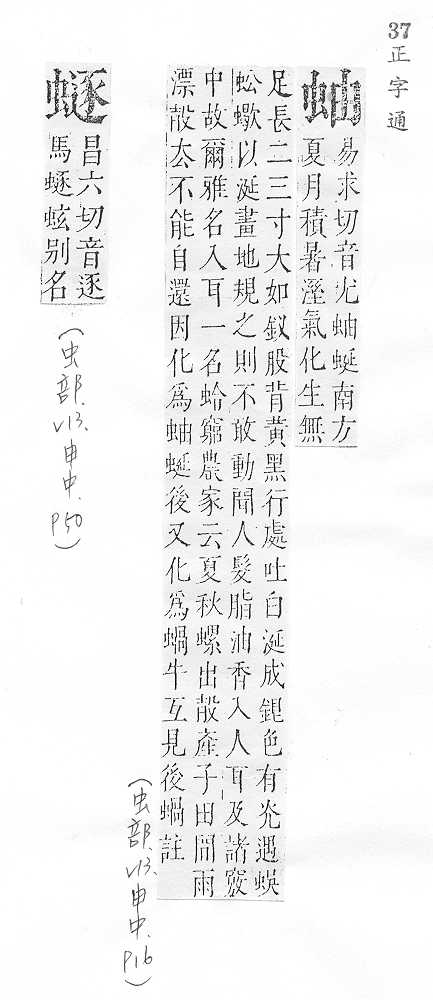 37
正字通
蚰
易求切音尤蚰蜒南方
夏月積暑溼氣化生無
足長二三寸大如釵股背黃黑行處吐白涎成銀色有光遇蜈
蚣蠍以涎畫地規之則不敢動聞人髮脂油香入人耳及諸竅
中故爾雅名入耳一名蛉窮農家云夏秋螺出殻產子田間雨
漂殻厺不能自還因化爲蚰蜒後又化爲蝸牛互見後蝸註
(虫部、v13、申中、P16)
蟸
昌六切音逐
馬蟸蚿别名
(虫部、v13、申中、P50)